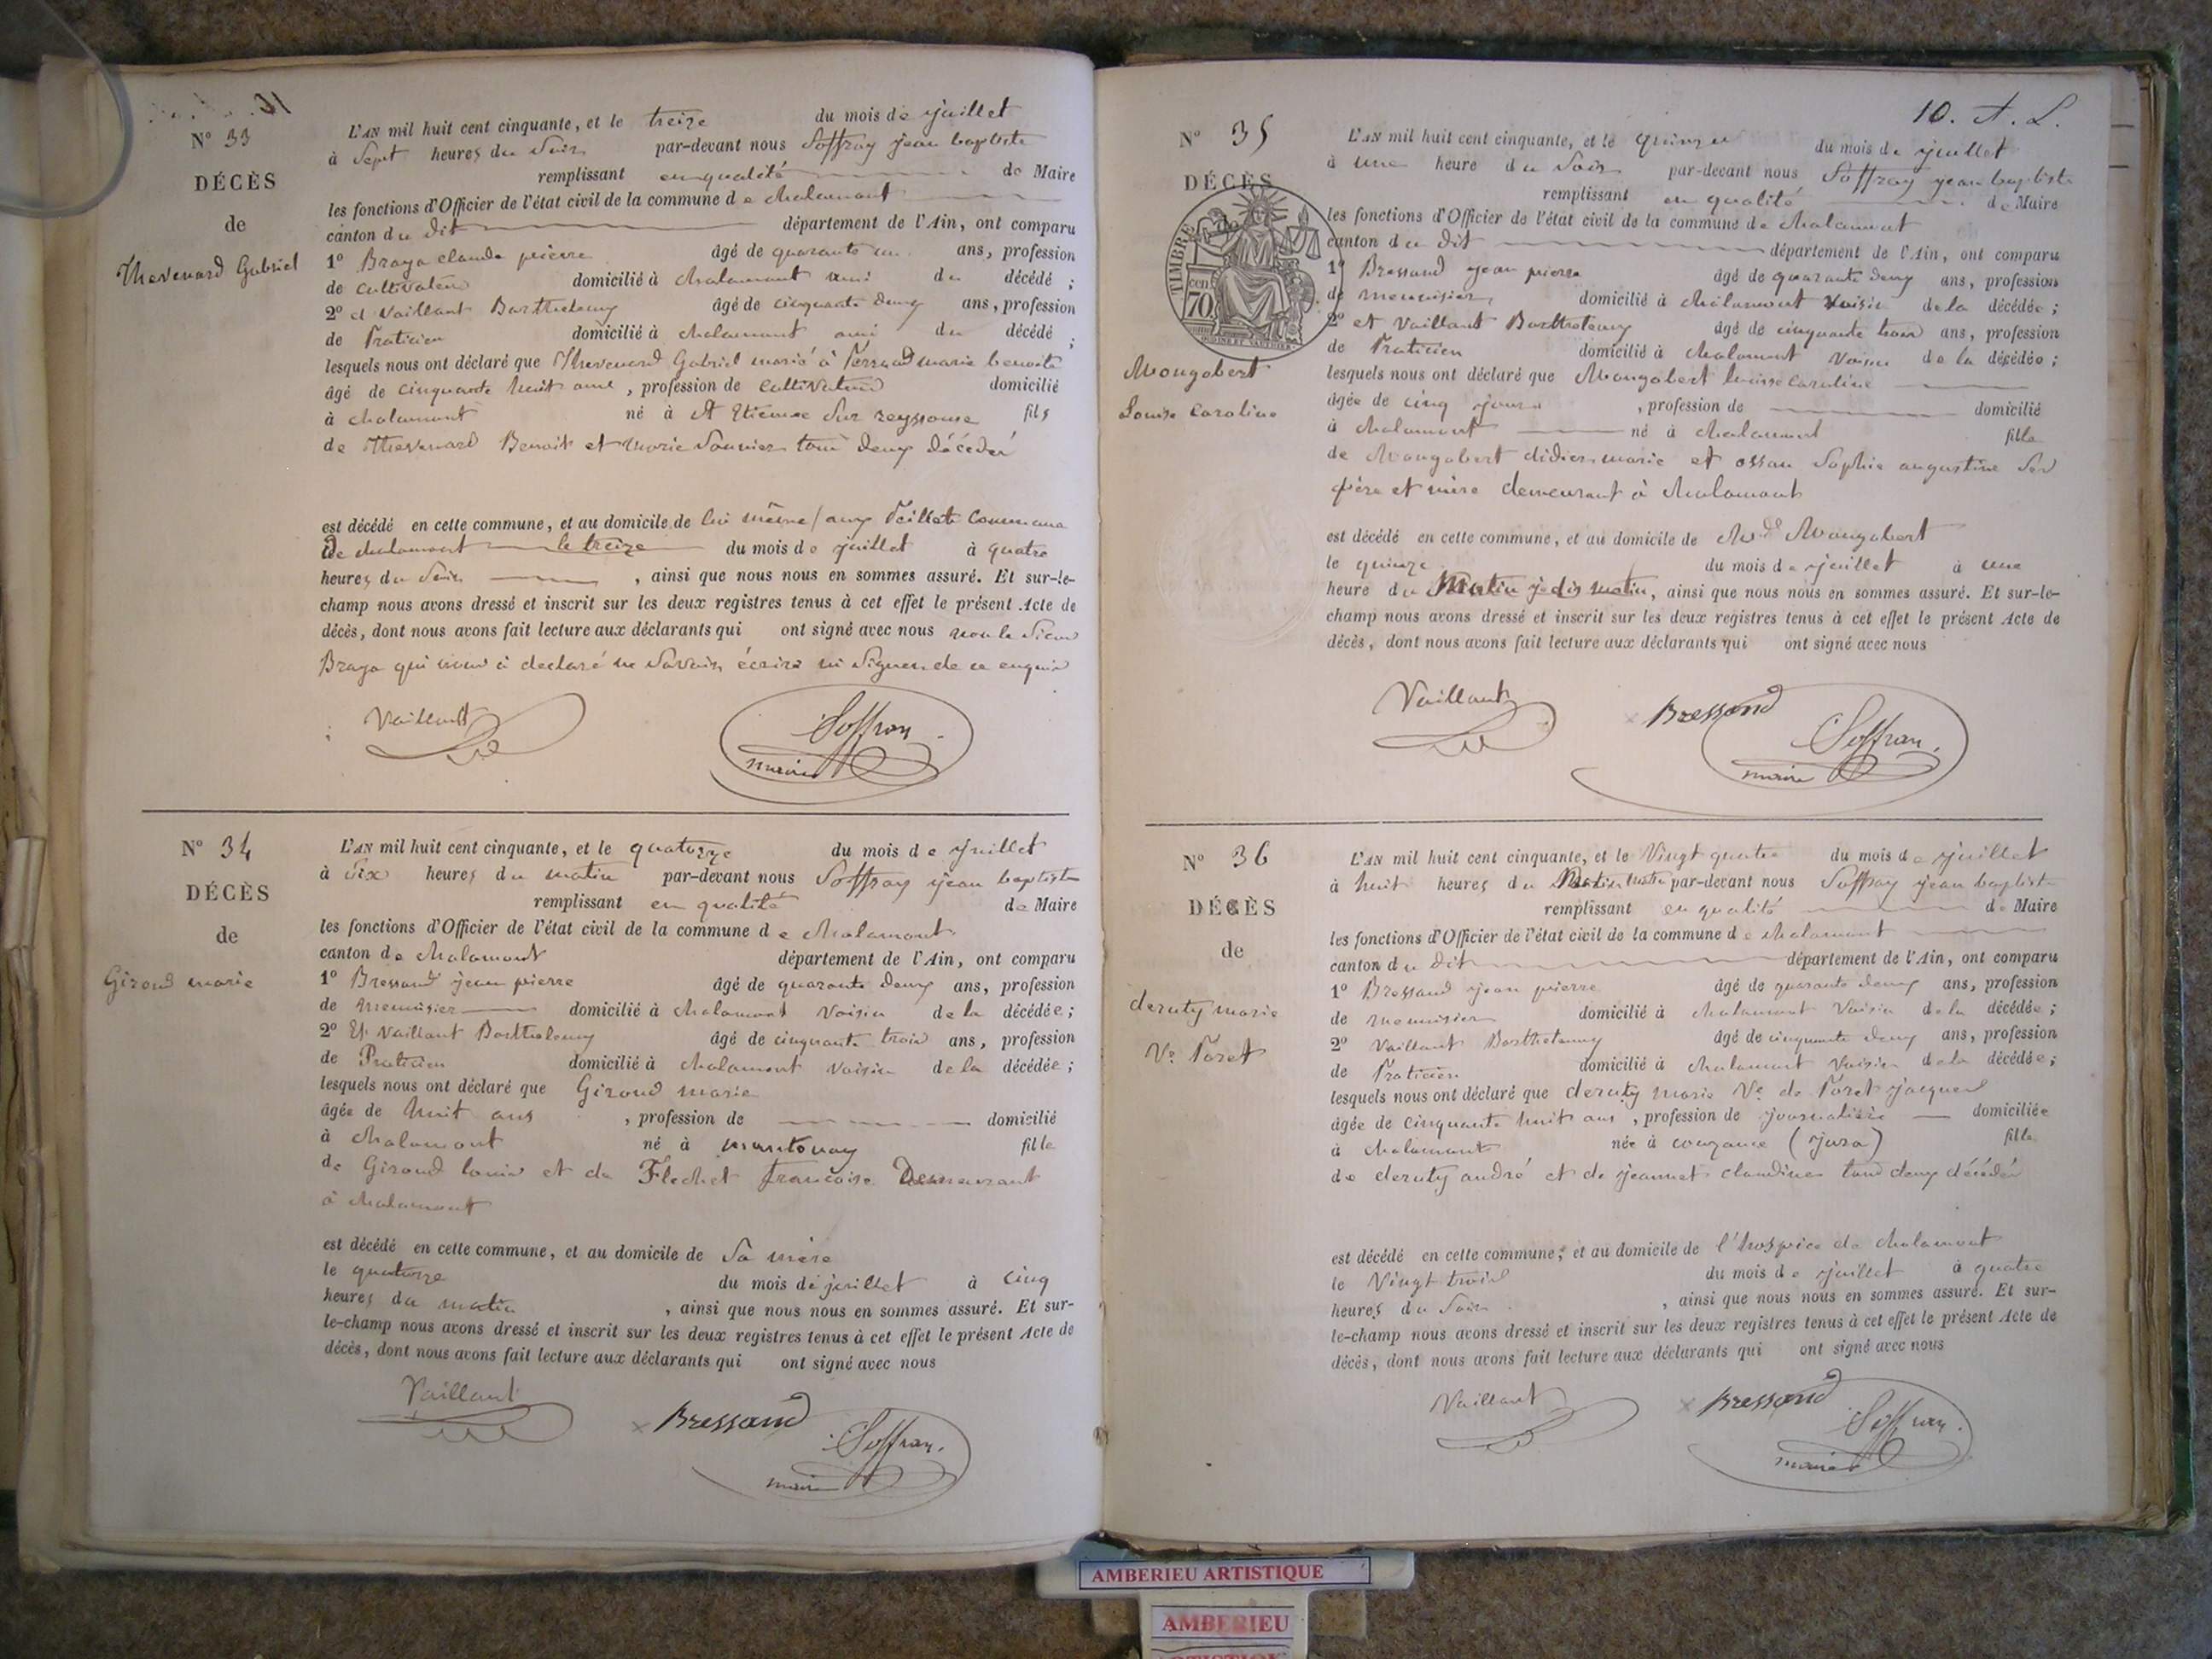 N° 33
DÉCÈS
de
Thevenard Gabriel
L'AN mil huit cent cinquante, et le treize du mois de juillet
à Sept heures du Soir par-devant nous Soffray jean baptiste
remplissant en qualité de Maire
les fonctions d'Officier de l'état civil de la commune de chalamont
canton du dit département de l'Ain, ont comparu
1° Braya claude pierre âgé de quarante un ans, profession
de Cultivateur domicilié à chalamont ami du décédé ;
2° et Vaillant Barthelemy âgé de cinquante deux ans, profession
de Praticien domicilié à chalamont ami du décédé ;
lesquels nous ont déclaré que Thevenard Gabriel marié à marie benoite
âgé de cinquante huit ans, profession de Cultivateur domicilié
à chalamont né à St Etienne Sur reyssouse fils
de Thevenard Benoit et marie Sounier tous deux décédés
est décédé en cette commune, et au domicile de lui même / aux commune
de chalamont le treize du mois de juillet à quatre
heures du Soir, ainsi que nous nous en sommes assuré. Et sur-le-
champ nous avons dressé et inscrit sur les deux registres tenus à cet effet le présent Acte de
décès, dont nous avons fait lecture aux déclarants qui ont signé avec nous non le Sieur
Braya qui nous a declaré ne Savoir écrire ni Signer de ce enquis
Vaillant
Soffray
maire
N° 34
DÉCÈS
de
Giroud marie
L'AN mil huit cent cinquante, et le quatorze du mois de juillet
à Six heures du matin par-devant nous Soffray jean baptiste
remplissant en qualité de Maire
les fonctions d'Officier de l'état civil de la commune de chalamont
canton de chalamont département de l'Ain, ont comparu
1° Bressand jean pierre âgé de quarante deux ans, profession
de menuisier domicilié à chalamont Voisin de la décédée ;
2° Et Vaillant Barthelemy âgé de cinquante trois ans, profession
de Praticien domicilié à chalamont voisin de la décédée ;
lesquels nous ont déclaré que Giroud marie
âgée de huit ans, profession de domicilié
à chalamont né à mantenay fille
de Giroud louis et de Flechet francoise Demeurant
à chalamont
est décédé en cette commune, et au domicile de Sa mère
le quatorze du mois de juillet à cinq
heures du matin, ainsi que nous nous en sommes assuré. Et sur-
le-champ nous avons dressé et inscrit sur les deux registres tenus à cet effet le présent Acte de
décès, dont nous avons fait lecture aux déclarants qui ont signé avec nous
Vaillant
Bressand
Soffray
maire
10. A. L.
N° 35
DÉCÈS
TIMBRE
70 cen
Mongobert
Louise Caroline
L'AN mil huit cent cinquante, et le quinze du mois de juillet
à une heure du Soir par-devant nous Soffray jean baptiste
remplissant en qualité de Maire
les fonctions d'Officier de l'état civil de la commune de chalamont
canton du dit département de l'Ain, ont comparu
1° Bressand jean pierre âgé de quarante deux ans, profession
de menuisier domicilié à chalamont voisin de la décédée ;
2° et Vaillant Barthelemy âgé de cinquante trois ans, profession
de Praticien domicilié à chalamont Voisin de la décédée ;
lesquels nous ont déclaré que Mongobert louise Caroline
âgée de cinq jours, profession de domicilié
à chalamont né à chalamont fille
de Mongobert didier marie et ossan Sophie augustine Ses
père et mère demeurant à chalamont
est décédé en cette commune, et au domicile de Mongobert
le quinze du mois de juillet à une
heure du Matin je dis matin, ainsi que nous nous en sommes assuré. Et sur-le-
champ nous avons dressé et inscrit sur les deux registres tenus à cet effet le présent Acte de
décès, dont nous avons fait lecture aux déclarants qui ont signé avec nous
Vaillant
Bressand
Soffray
maire
N° 36
DÉCÈS
de
deruty marie
Ve Foret
L'AN mil huit cent cinquante, et le Vingt quatre du mois de juillet
à huit heures du matin par-devant nous Soffray jean baptiste
remplissant en qualité de Maire
les fonctions d'Officier de l'état civil de la commune de chalamont
canton du dit département de l'Ain, ont comparu
1° Bressand jean pierre âgé de quarante deux ans, profession
de menuisier domicilié à chalamont Voisin de la décédée ;
2° Vaillant Barthelemy âgé de cinquante deux ans, profession
de Praticien domicilié à chalamont Voisin de la décédée ;
lesquels nous ont déclaré que deruty marie Ve de Foret jacques
âgée de cinquante huit ans, profession de journalière domiciliée
à chalamont née à couzance (jura) fille
de deruty andré et de jeannet claudine tous deux décédés
est décédé en cette commune, et au domicile de l'hospice de chalamont
le Vingt trois du mois de juillet à quatre
heures du Soir, ainsi que nous nous en sommes assuré. Et sur-
le-champ nous avons dressé et inscrit sur les deux registres tenus à cet effet le présent Acte de
décès, dont nous avons fait lecture aux déclarants qui ont signé avec nous
Vaillant
Bressand
Soffray
maire
AMBERIEU ARTISTIQUE
AMBERIEU
ARTISTIQUE